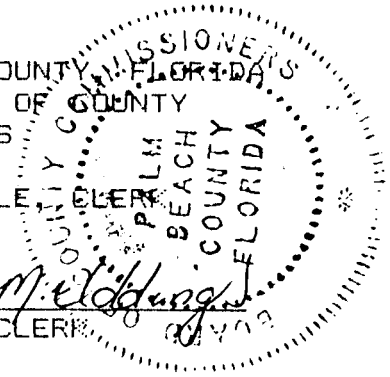 OUNTY, FLORIDA
OF COUNTY
S
LE, CLERK
CLERK
COUNTY COMMISSIONERS
BOARD
PALM
BEACH
COUNTY
FLORIDA